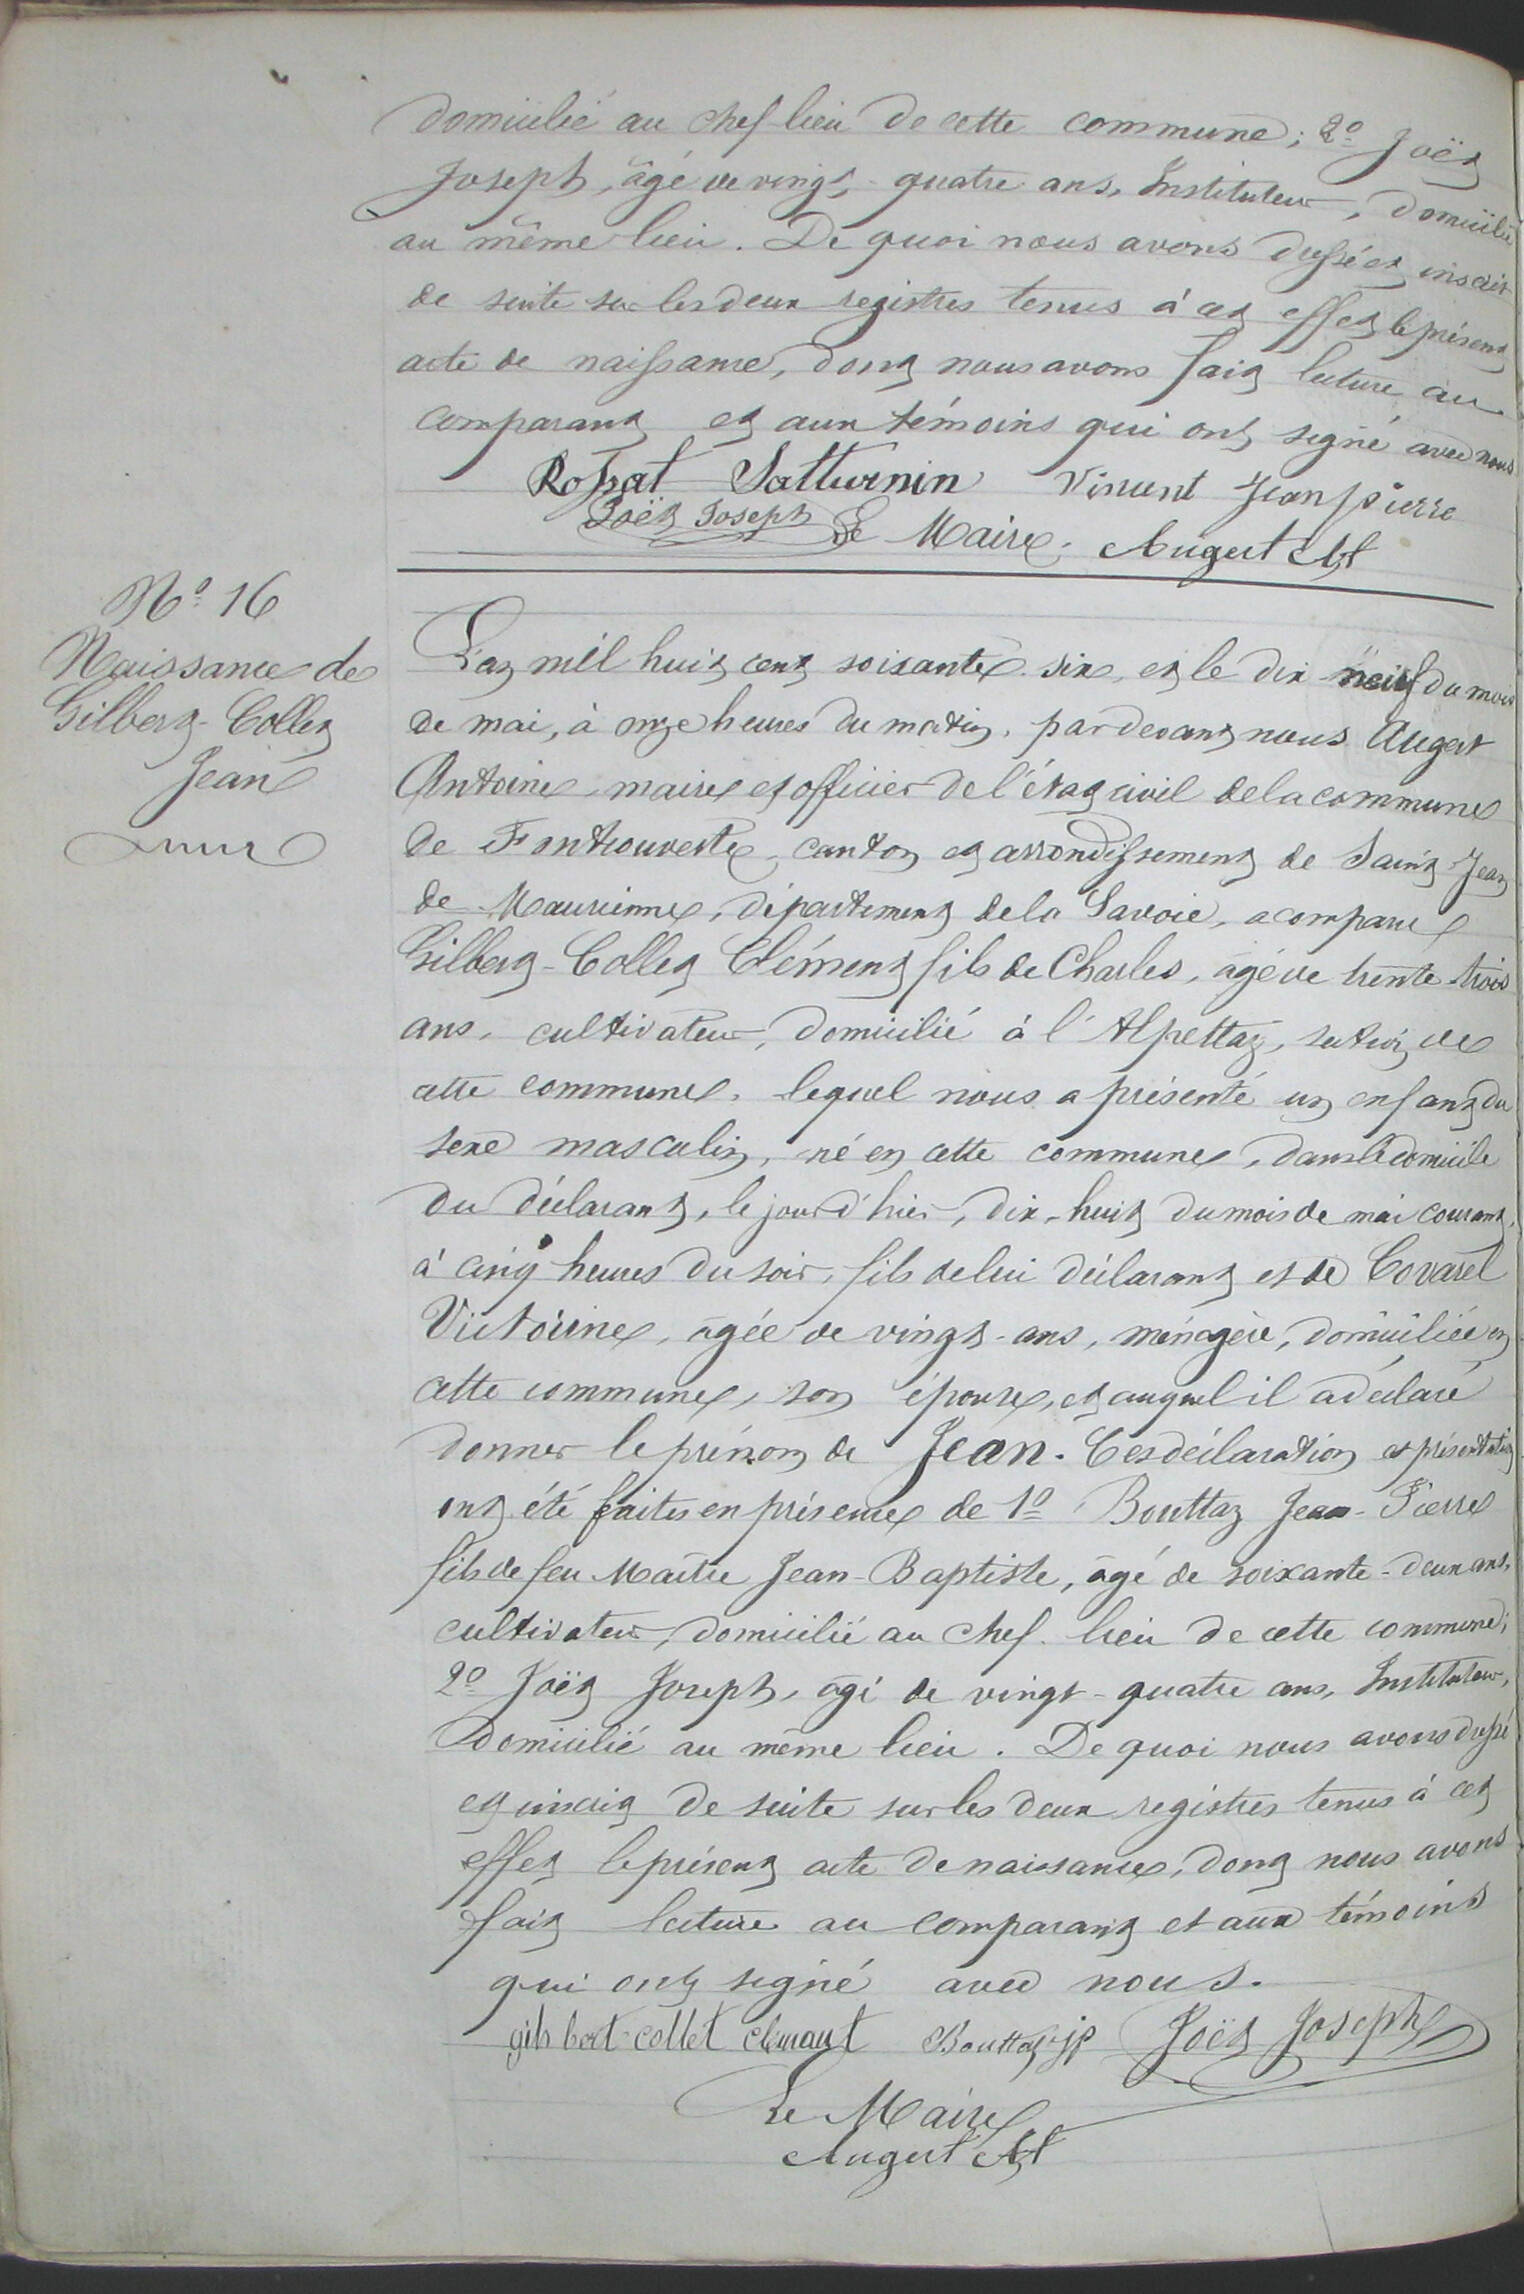 domicilié au chef-lieu de cette commune; 2º Joët
Joseph, âgé de vingt-quatre ans, Instituteur, domicilié
au même lieu. De quoi nous avons dressé et inscrit
de suite sur les deux registres tenus à cet effet le présent
acte de naissance, dont nous avons fait lecture au
comparant et aux témoins qui ont signé avec nous
Rossat Satturnin Vincent Jean pierre
Joët Joseph Le Maire. Augert Ant
Nº 16
Naissance de
Gilbert-Collet
Jean
L'an mil huit cent soixante-six, et le dix-neuf du mois
de mai, à onze heures du matin, par devant nous Augert
Antoine maire et officier de l'état civil de la commune
de Fontcouverte, canton et arrondissement de Saint-Jean
de Maurienne, département de la Savoie, a comparu
Gilbert-Collet Clément fils de Charles, âgé de trente-trois
ans, cultivateur, domicilié à l'Alpettaz, section de
cette commune, lequel nous a présenté un enfant du
sexe masculin, né en cette commune, dans le domicile
du déclarant, le jour d'hier, dix-huit du mois de mai courant,
à cinq heures du soir, fils de lui déclarant et de Covarel
Victoirine, âgée de vingt-ans, ménagère, domiciliée en
cette commune, son épouse, et auquel il a déclaré
donner le prénom de Jean. Ces déclaration et présentation
ont été faites en présence de 1º Bouttaz Jean-Pierre
fils de feu Maître Jean-Baptiste, âgé de soixante-deux ans,
cultivateur, domicilié au chef-lieu de cette commune;
2º Joët Joseph, âgé de vingt-quatre ans, Instituteur,
domicilié au même lieu. De quoi nous avons dressé
et inscrit de suite sur les deux registres tenus à cet
effet le présent acte de naissance, dont nous avons
fait lecture au comparant et aux témoins
qui ont signé avec nous.
gilbert-collet clemant Bouttaz jp Joët Joseph
Le Maire
Augert Ant